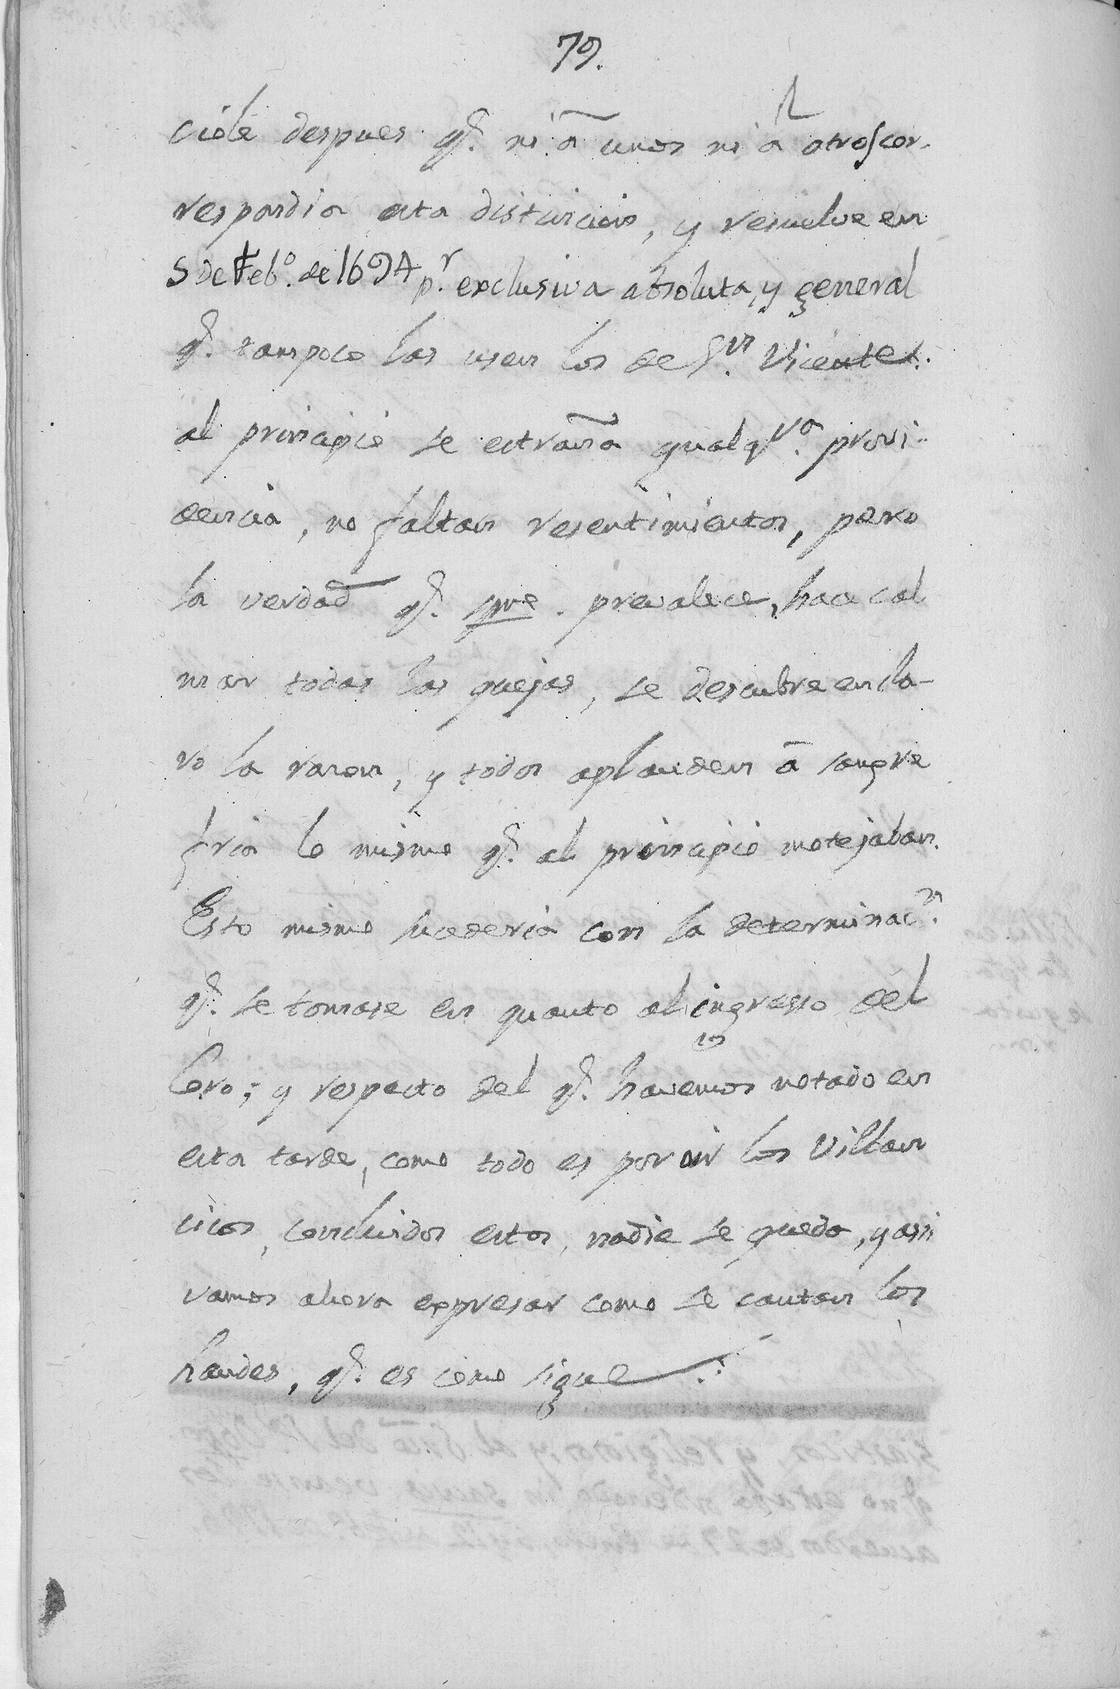 79.
ciole despues q.e ni â unos ni â otros cor-
respondia esta distincion, y resuelve en
5 de Feb.o de 1694 p.r exclusiva absoluta, y general
q.e tampoco las usen los de S.n Vicente.
al principio se estraña qualq.ra provi-
dencia, no faltan resentimientos, pero
la verdad q.e spre. prevalece, hace cal
mar todas las quejas, se descubre en cla-
ro la razon, y todos aplauden â sangre
fria lo mismo q.e al principio motejaban.
Esto mismo sucederia con la determinac.n
q.e se tomase en quanto al ingresso del
Coro; y respecto del q.e havemos notado en
esta tarde, como todo es por oir los Villan
cicos, concluidos estos, nadie se queda, y assi
vamos ahora expresar como se cantan los
laudes, q.e es como sigue